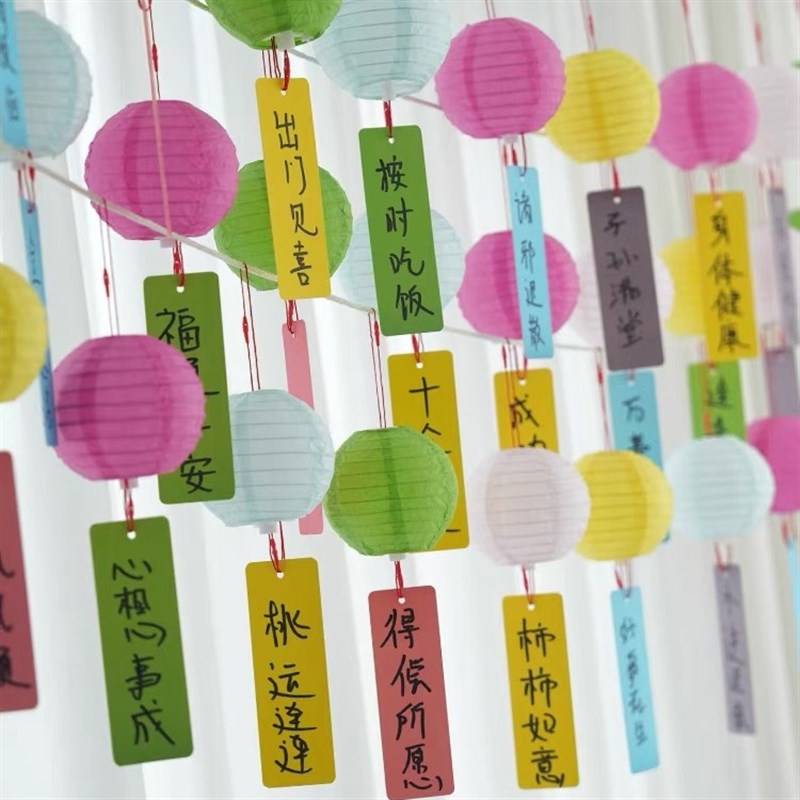 出门见喜
按时吃饭
诸邪退散
子孙满堂
身体健康
福
安
十
成
万
心想事成
桃运连连
得偿所愿
柿柿如意
好事发生